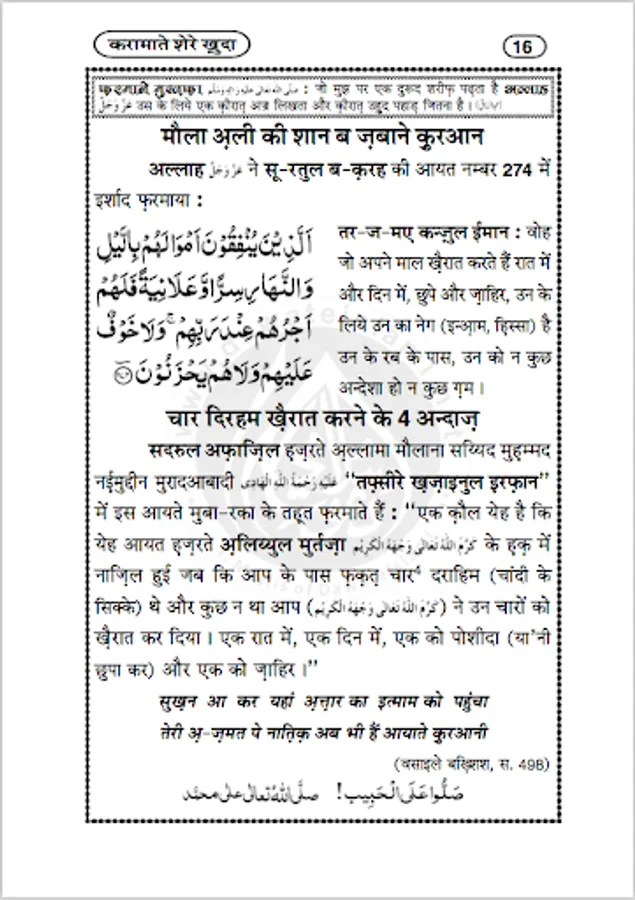 करामाते शेरे ख़ुदा
16
फ़रमाने मुस्तफ़ा صلى الله تعالى عليه واله وسلم : जो मुझ पर एक दुरूद शरीफ़ पढ़ता है अल्लाह
عَزَّوَجَلَّ उस के लिये एक क़ीरात़ अज्र लिखता और क़ीरात़ उहुद पहाड़ जितना है ।
मौला अ़ली की शान ब ज़बाने क़ुरआन
अल्लाह عَزَّوَجَلَّ ने सू-रतुल ब-क़रह की आयत नम्बर 274 में
इर्शाद फ़रमाया :
اَلَّذِيْنَ يُنْفِقُوْنَ اَمْوَالَهُمْ بِالَّيْلِ
وَالنَّهَارِ سِرًّا وَّعَلَانِيَةً فَلَهُمْ
اَجْرُهُمْ عِنْدَ رَبِّهِمْ ۚ وَلَا خَوْفٌ
عَلَيْهِمْ وَلَا هُمْ يَحْزَنُوْنَ
तर-ज-मए कन्ज़ुल ईमान : वोह
जो अपने माल ख़ैरात करते हैं रात में
और दिन में, छुपे और ज़ाहिर, उन के
लिये उन का नेग (इन्आ़म, हिस्सा) है
उन के रब के पास, उन को न कुछ
अन्देशा हो न कुछ ग़म ।
चार दिरहम ख़ैरात करने के 4 अन्दाज़
सदरुल अफ़ाज़िल हज़रते अ़ल्लामा मौलाना सय्यिद मुह़म्मद
नई़मुद्दीन मुरादआबादी عَلَيْهِ رَحْمَةُ اللّٰهِ الْهَادِى “तफ़्सीरे ख़ज़ाइनुल इरफ़ान”
में इस आयते मुबा-रका के तह़त फ़रमाते हैं : “एक क़ौल येह है कि
येह आयत हज़रते अ़लिय्युल मुर्तज़ा كَرَّمَ اللّٰهُ تَعَالٰى وَجْهَهُ الْكَرِيْم के ह़क़ में
नाज़िल हुई जब कि आप के पास फ़क़त़ चार⁴ दराहिम (चांदी के
सिक्के) थे और कुछ न था आप (كَرَّمَ اللّٰهُ تَعَالٰى وَجْهَهُ الْكَرِيْم) ने उन चारों को
ख़ैरात कर दिया । एक रात में, एक दिन में, एक को पोशीदा (या'नी
छुपा कर) और एक को ज़ाहिर ।”
सुख़न आ कर यहां अ़त्त़ार का इत्माम को पहुंचा
तेरी अ़-ज़मत पे नात़िक़ अब भी हैं आयाते क़ुरआनी
(वसाइले बख़्शिश, स. 498)
صَلُّوا عَلَى الْحَبِيْب! صلَّى اللهُ تعالى على محمَّد